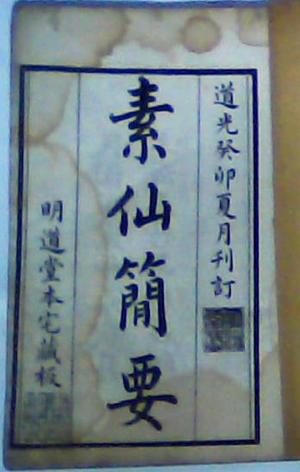 道光癸卯夏月刊訂
素仙簡要
明道堂本宅藏板